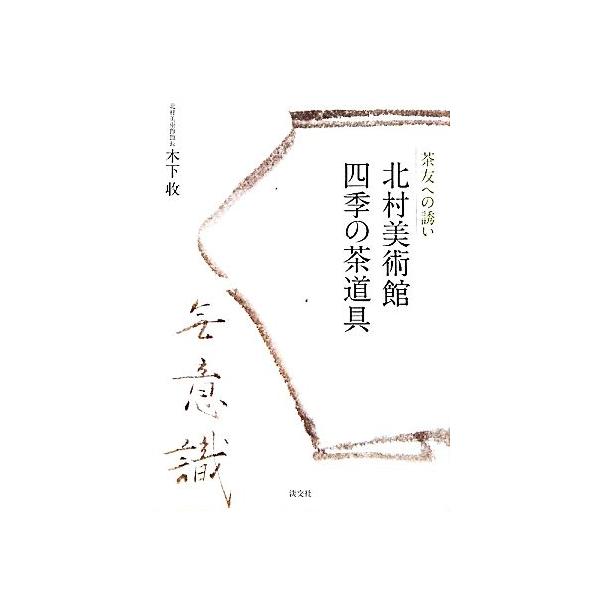 茶友への誘い
北村美術館
四季の茶道具
北村美術館館長
木下收
無意識
淡交社